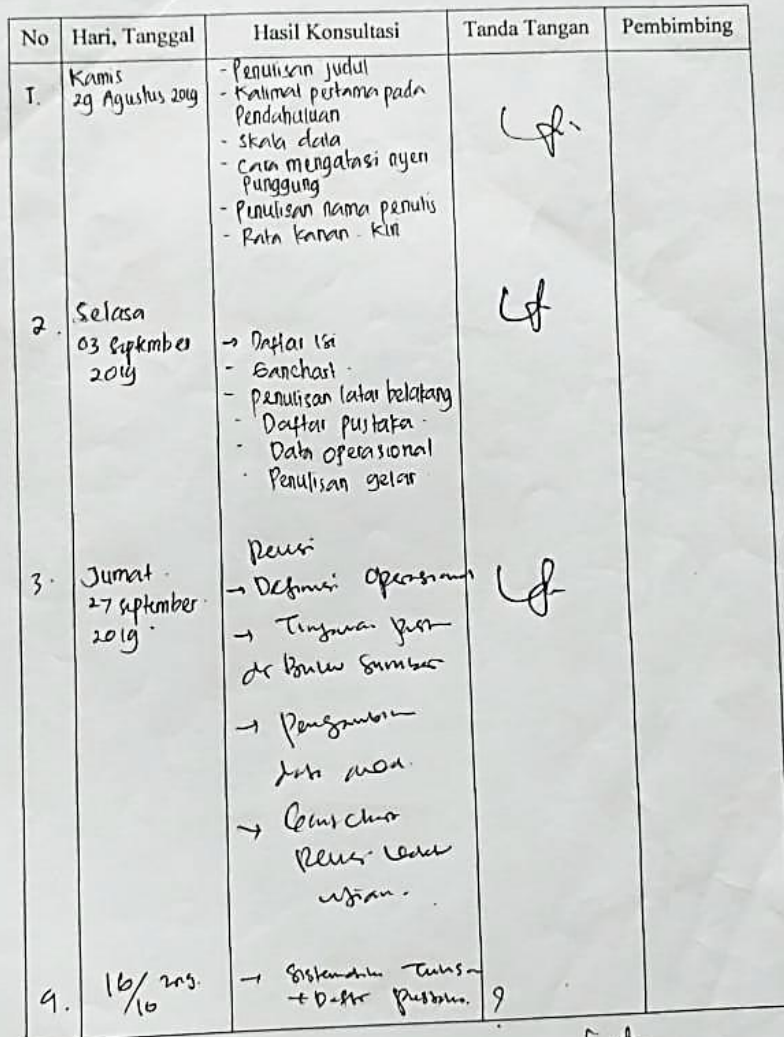 No Hari, Tanggal Hasil Konsultasi Tanda Tangan Pembimbing
1. Kamis
29 Agustus 2019
- Penulisan judul
- Kalimat pertama pada
Pendahuluan
- Skala data
- Cara mengatasi nyeri
Punggung
- Penulisan nama penulis
- Rata kanan - kiri
2. Selasa
03 September
2019
→ Daftar isi
- Ganchart
- Penulisan latar belakang
- Daftar pustaka
- Data operasional
- Penulisan gelar
3. Jumat
27 September
2019
Revisi
→ Definisi Operasional
→ Tinjauan
Buku Sumber
→ Pengambilan
data
→
Revisi
ujian.
4. 16/10
→ Sistematika
+ Daftar Pustaka.